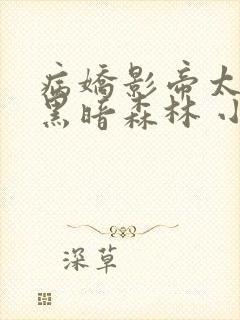 病嬌影帝太
黑暗森林 小
深草